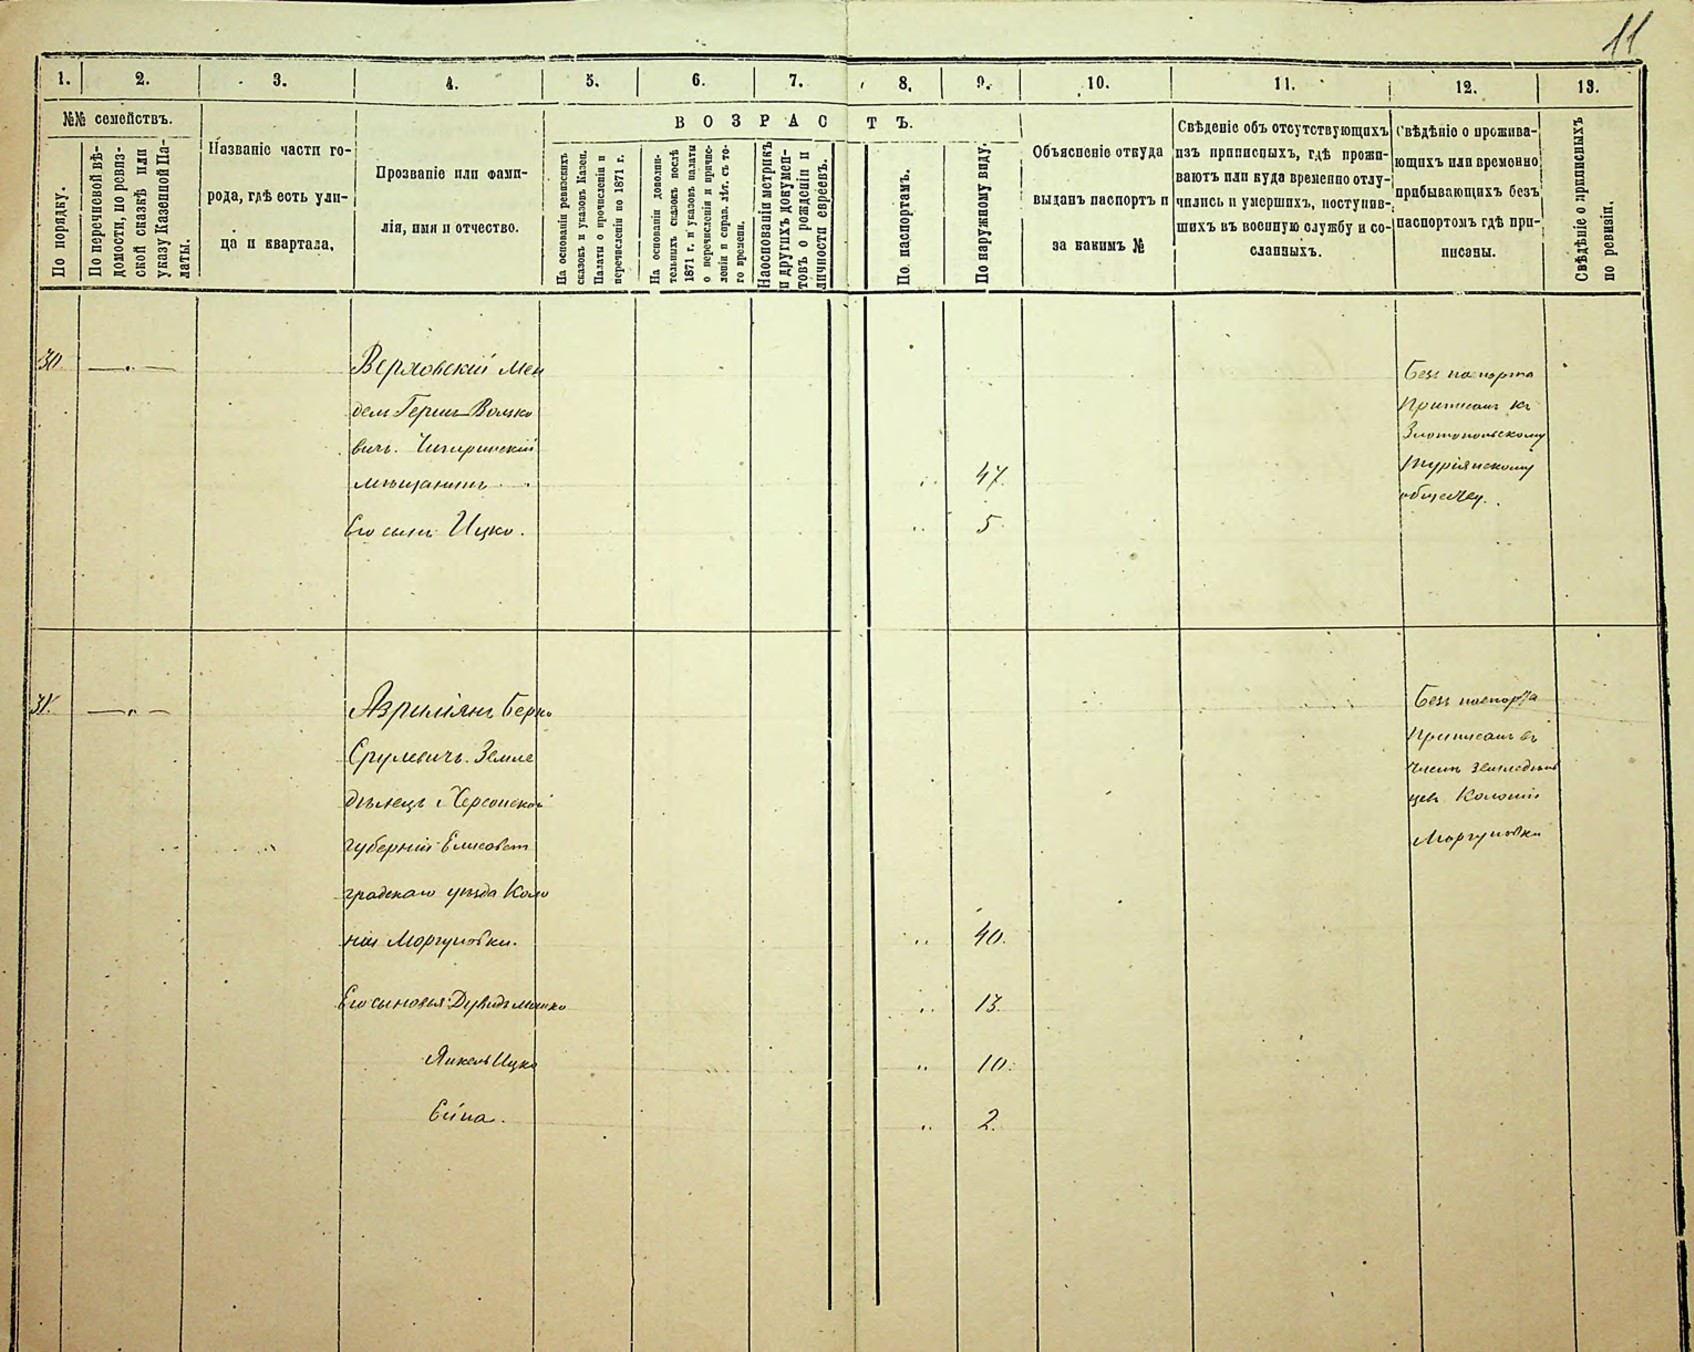 11
1. 2. 3. 4. 5. 6. 7. 8. 9. 10. 11. 12. 13.
№№ семействъ.
По порядку.
По перечневой вѣ-
домости, по ревиз-
ской сказкѣ или
указу Казенной Па-
латы.
Названіе части го-
рода, гдѣ есть ули-
ца и квартала.
Прозваніе или фами-
лія, имя и отчество.
ВОЗРАСТЪ.
На основаніи ревизскихъ
сказокъ и указовъ Казен.
Палаты о причисленіи и
перечисленіи по 1871 г.
На основаніи дополни-
тельныхъ сказокъ послѣ
1871 г. и указовъ палаты
о перечисленіи и причис-
леніи и справ. лѣт. съ то-
го времени.
На основаніи метрикъ
и другихъ докумен-
товъ о рожденіи и
личности евреевъ.
По паспортамъ.
По наружному виду.
Объясненіе откуда
выданъ паспортъ и
за какимъ №
Свѣденіе объ отсутствующихъ
изъ приписныхъ, гдѣ прожи-
ваютъ или куда временно отлу-
чились и умершихъ, поступив-
шихъ въ военную службу и со-
сланныхъ.
Свѣдѣніе о прожива-
ющихъ или временно
прибывающихъ безъ
паспортомъ гдѣ при-
писаны.
Свѣдѣніе о приписныхъ
по ревизіи.
30.
Верховскій Мен
дель Гершъ Волько
вичъ. Чигиринскій
мѣщанинъ
„ 47.
Его сынъ Ицко.
„ 5.
Безъ паспорта
Приписанъ къ
Златопольскому
мѣщанскому
обществу.
31.
Азриліянъ Берко
Срулевичъ. Земле
дѣлецъ Херсонской
губерніи Елисавет
градскаго уѣзда Коло
ніи Моргуновки.
„ 40.
Его сыновья: Дувидъ Мошко
„ 13.
Янкель Ицко
„ 10.
„ 2.
Безъ паспорта
Приписанъ въ
число земледѣль
цевъ Колоніи
Моргуновки